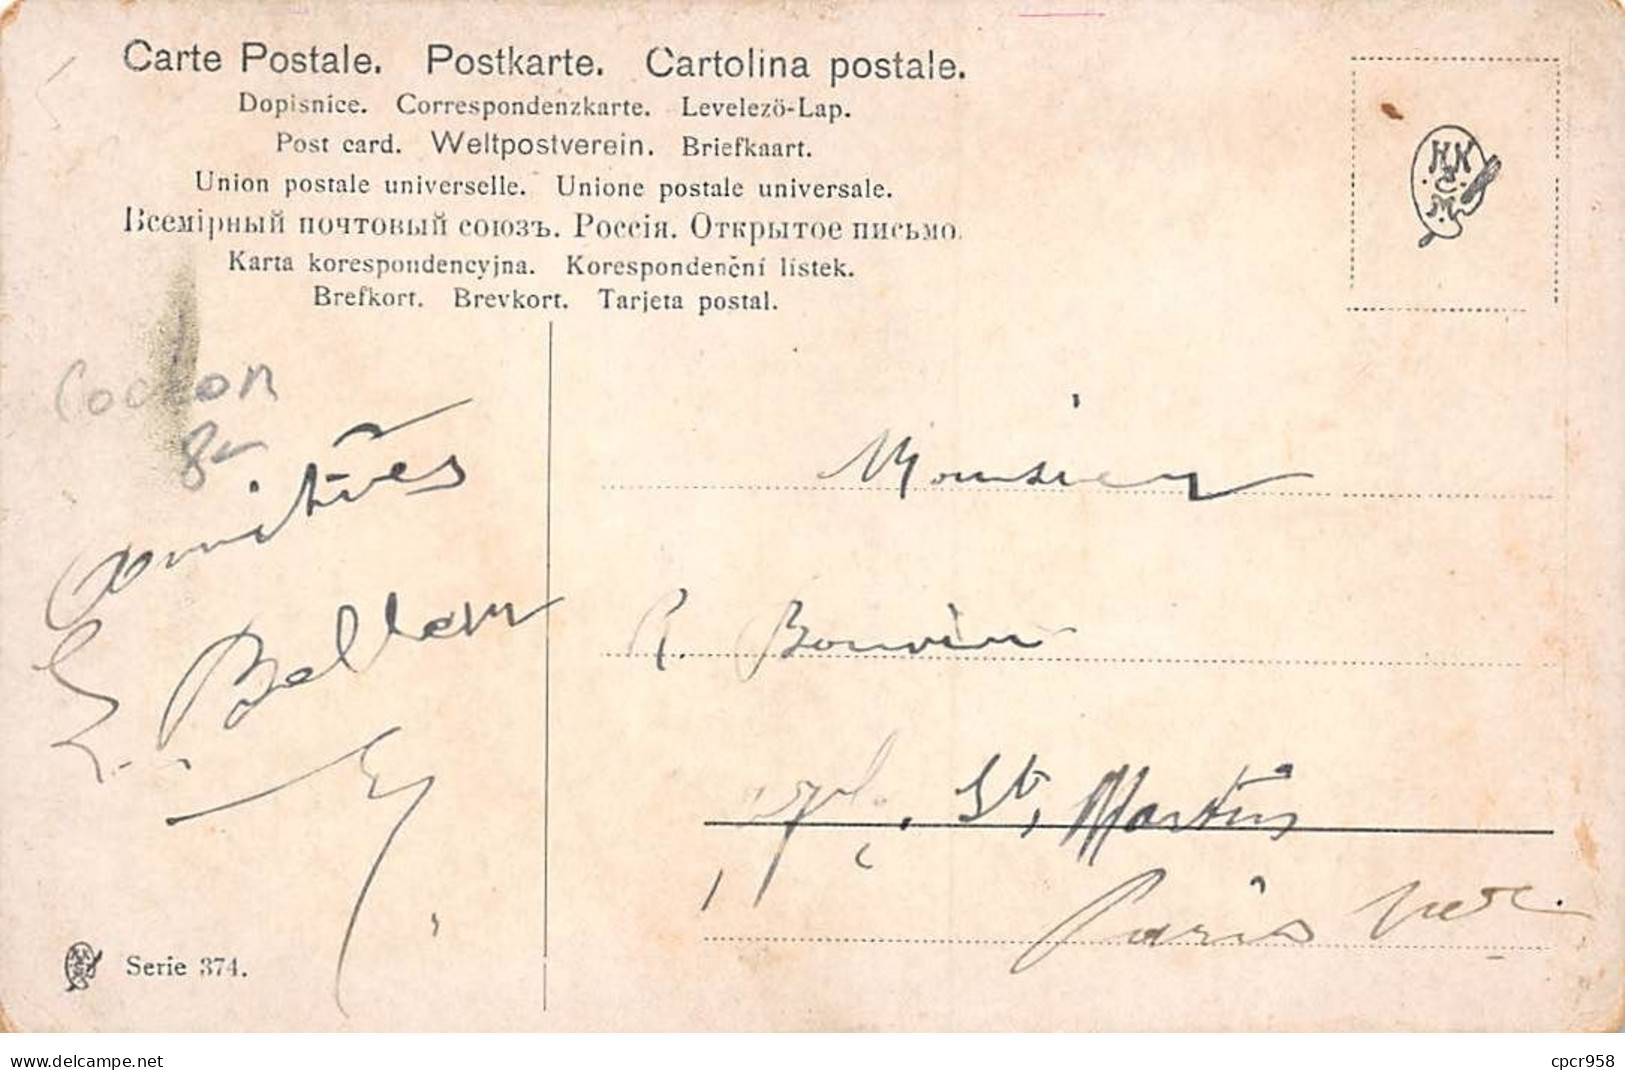 Carte Postale. Postkarte. Cartolina postale.
Dopisnice. Correspondenzkarte. Levelezö-Lap.
Post card. Weltpostverein. Briefkaart.
Union postale universelle. Unione postale universale.
Всемірный почтовый союзъ. Россія. Открытое письмо.
Karta korespondencyjna. Korespondenční lístek.
Brefkort. Brevkort. Tarjeta postal.
Cochon
8-
Amitiés
Monsieur
R. Bouvin
St. Martin
Paris
Serie 374.
www.delcampe.net
cpcr958